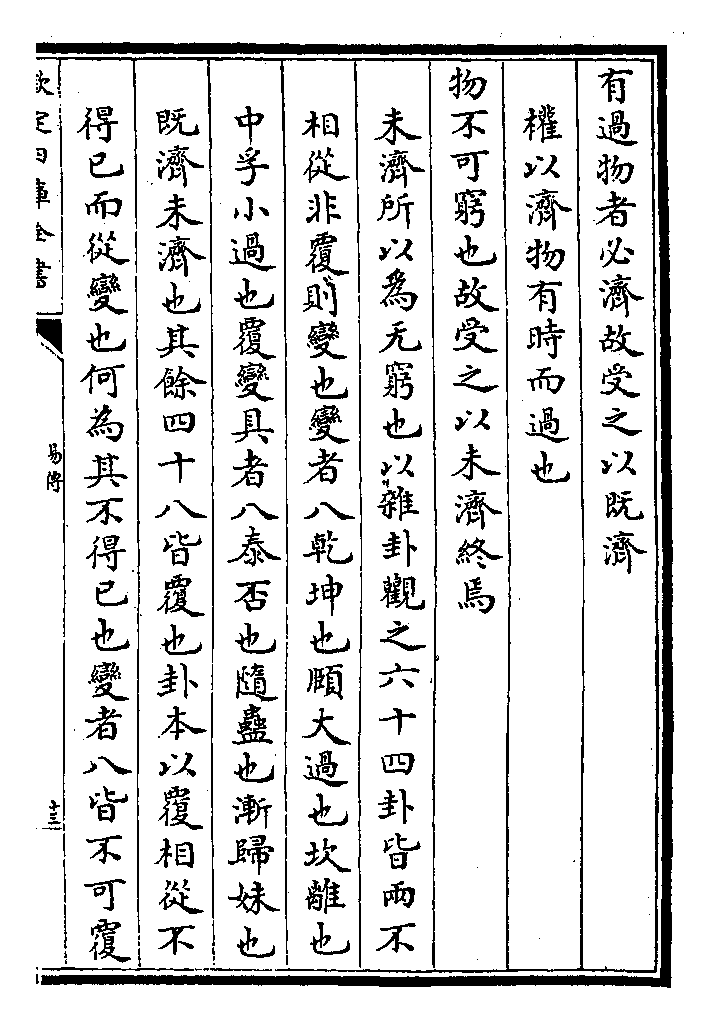 有過物者必濟故受之以既濟
權以濟物有時而過也
物不可窮也故受之以未濟終焉
未濟所以為无窮也以雜卦觀之六十四卦皆兩不
相從非覆則變也變者八乾坤也頤大過也坎離也
中孚小過也覆變具者八泰否也隨蠱也漸歸妹也
既濟未濟也其餘四十八皆覆也卦本以覆相從不
得已而從變也何為其不得已也變者八皆不可覆
欽定四庫全書
易傳
十三